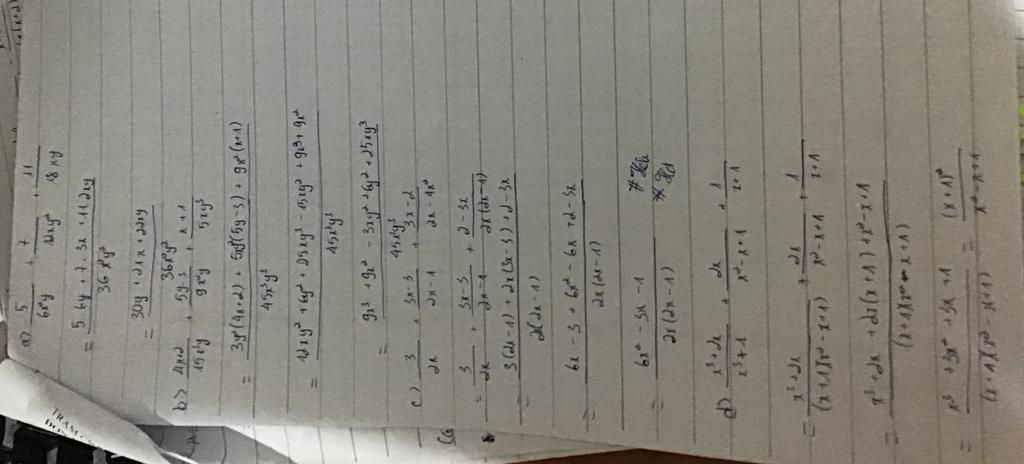 a) 5/6x²y + 7/12xy² + 11/18xy
= 5.6y + 7.3x + 11.2xy / 36x²y²
= 30y + 21x + 22xy / 36x²y²
b) 4x+2/15x³y + 5y-3/9x²y + x+1/5xy³
= 3y²(4x+2) + 5xy²(5y-3) + 9x²(x+1) / 45x³y³
= 12xy² + 6y² + 25xy³ - 15xy² + 9x³ + 9x² / 45x³y³
= 9x³ + 9x² - 3xy² + 6y² + 25xy³ / 45x³y³
c) 3/2x + 3x-3/2x-1 + 3x-2/2x-4x²
= 3/2x + 3x-3/2x-1 + 2-3x/2x(2x-1)
= 3(2x-1) + 2x(3x-3) + 2-3x / 2(2x-1)
= 6x - 3 + 6x² - 6x + 2 - 3x / 2x(2x-1)
= 6x² - 3x - 1 / 2x(2x-1)
d) x³+2x/x³+1 + 2x/x²-x+1 + 1/x+1
= x³+2x/(x+1)(x²-x+1) + 2x/x²-x+1 + 1/x+1
= x³ + 2x + 2x(x+1) + x²-x+1 / (x+1)(x²-x+1)
= x³ + 3x² + 3x + 1 / (x+1)(x²-x+1) = (x+1)² / x²-x+1